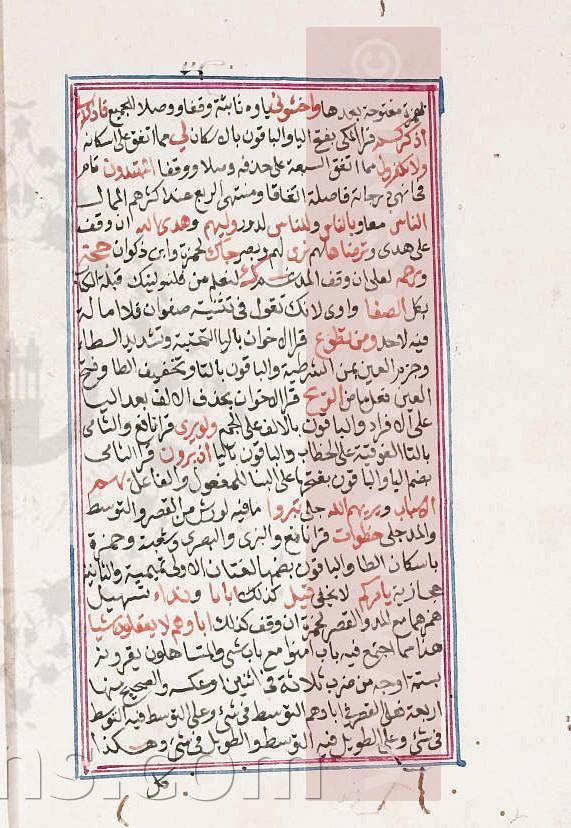 بهمزة مفتوحة بعدها واخشوني ياوه ثابتة وقفا ووصلا للجميع فاذكروني
اذكركم قرا المكي بفتح اليا والباقون بالاسكان لي مما اتفق على اسكانه
ولا تكفرون مما اتفق السبعة على حذفه وصلا ووقفا المهتدون تام
في انهى درجاته فاصلة اتفاقا ومنتهى الربع عند اكثرهم الممال
الناس معا وبالناس وللناس لدور وليهم وهدى الله ان وقف
على هدى وترضاها لهم نرى لهم وبصر جاك لحمزة وابن ذكوان حجة
ورحمة لعلي ان وقف المدغم لنعلم من فلنولينك قبلة الكتاب
بكل الصفا واوي لانك تقول في تثنيته صفوان فلا امالة
فيه لاحد ومن تطوع قرا الاخوان باليا التحتية وتشديد الطا
وجزم العين بمن الشرطية والباقون بالتا وتخفيف الطا وفتح
العين فعل ماض الريح قرا الاخوان بحذف الالف بعد اليا
على الافراد والباقون بالالف على الجمع ولو يرى قرا نافع والشامي
بالتا الفوقية على الخطاب والباقون باليا اذ يرون قرا الشامي
بضم اليا والباقون بفتحها على البنا للمفعول والفاعل بهم
الاسباب ويريهم الله جلي تبروا ما فيه لورش من القصر والتوسط
والمد جلي خطوات قرا نافع والبزي والبصري وشعبة وحمزة
باسكان الطا والباقون بضمها لغتان الاولى تميمية والثانية
حجازية يامركم لا يخفى قيل كذلك ابانا وندا تسهيل
همزهما مع المد والقصر لحمزة ان وقف كذلك اباوهم لا يعقلون شيا
هذا مما اجمع فيه باب امنوا مع باب شي والمتساهلون يقرونه
بستة اوجه من ضرب ثلاثة في اثنين او عكسه والصحيح منها
اربعة فعلى القصر في اباوهم التوسط في شي وعلى التوسط فيه التوسط
في شي وعلى الطويل فيه التوسط والطويل في شي وهكذا
كل
ns.com